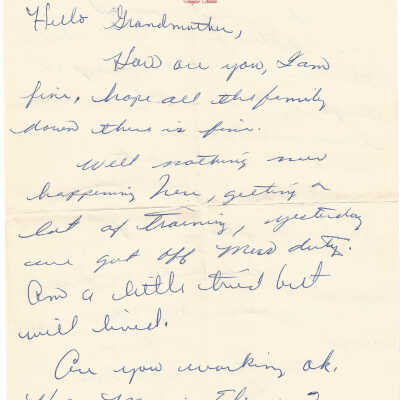 Hello Grandmother,
How are you, I am
fine, hope all the family
down there is fine.
Well nothing new
happening here, getting a
lot of training, yesterday
we got off Mess duty.
Am a little tried but
will lived.
Are you working ok.